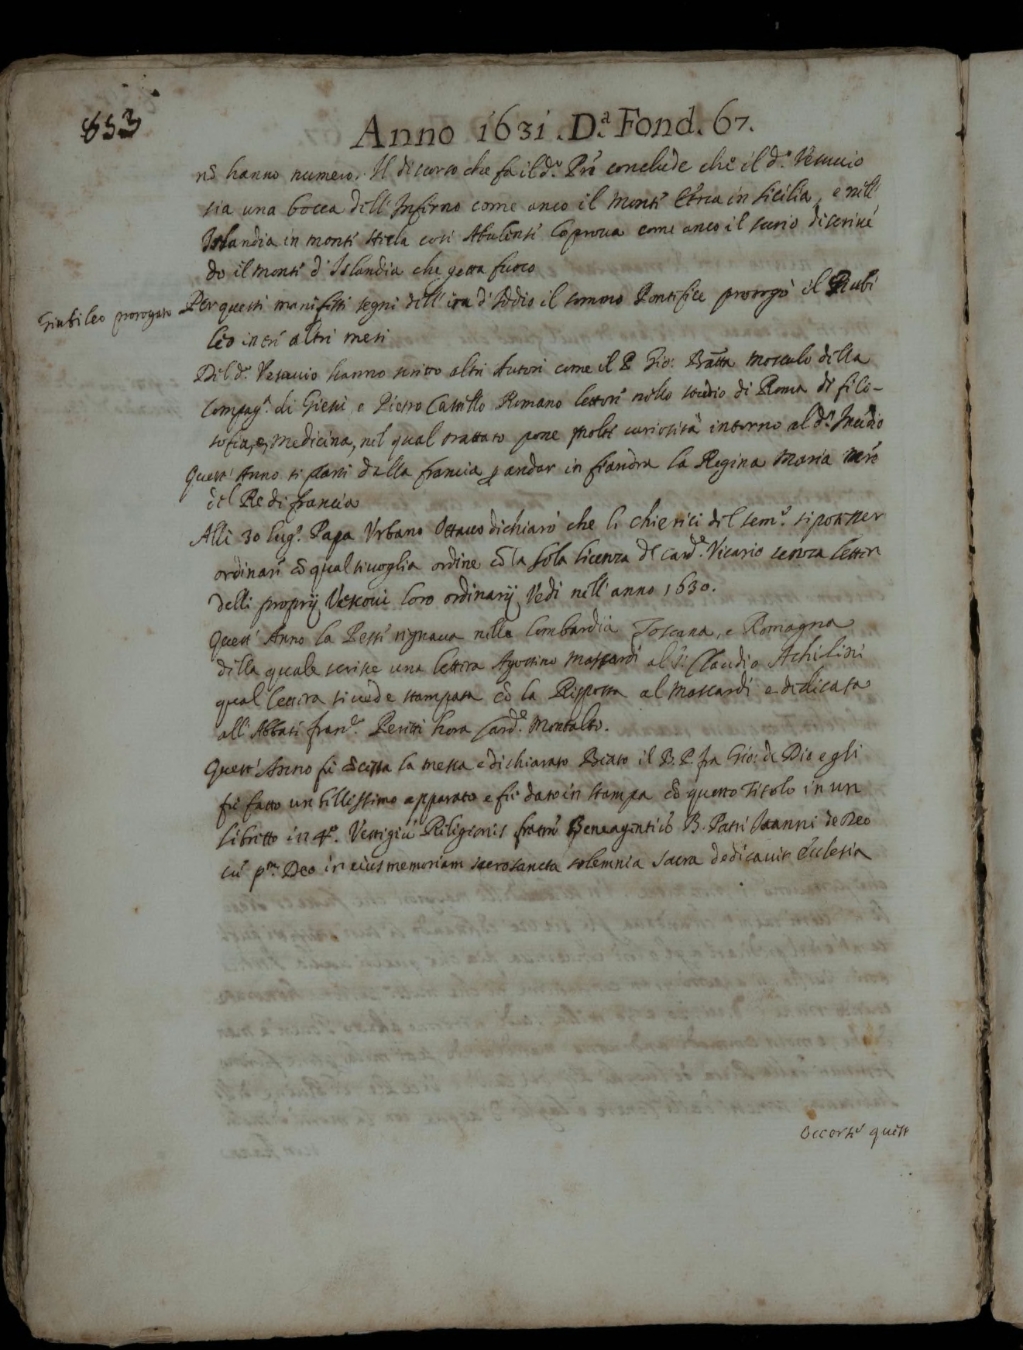 853
Anno 1631. D.ª Fond. 67.
nõ hanno numero. Il discorso che fa il d.º Prē conclude che il d.º Vesuuio
sia una bocca dell'Inferno come anco il monte Etna in Sicilia, e nell'
Islandia in monte Hecla così come anco il
do il monte d'Islandia che getta fuoco
Giubileo prorogato
Per questi manifesti segni dell'ira d'Iddio il sommo Pontefice prorogò il Iubi
leo altri mesi
Del d.º Vesuuio hanno scritto altri Autori come il P. Gio: Batta Mosculo della
Compag.ª di Giesù, e Pietro Castello Romano lettore nello studio di Roma di filo-
sofia, e medicina, nel qual trattato pone molte curiosità intorno al d.º Incēdio
Quest'Anno si partì dalla francia p andar in fiandra la Regina Maria Mrē
del Re di francia
Alli 30 lug.º Papa Vrbano Ottauo dichiarò che li chierici del sem.º si potesser
ordinari cō qual si uoglia ordine cō la sola licenza del Card.e Vicario senza letter
delli proprij Vescoui loro ordinarij Vedi nell'anno 1630.
Quest'Anno la Peste regnaua nella Lombardia Toscana, e Romagna
della quale scrisse una lettera Agostino Mascardi al S.r Claudio Achilini
qual lettera si uede stampata cō la Risposta al Mascardi e dedicata
all'Abbate fran.co Peretti hora Card.e Montalto.
Quest'Anno fù cōcessa la messa e dichiarato Beato il B. P. fra Gio: de Dio e gli
fù fatto un bellissimo apparato e fù dato in stampa cō questo Titolo in un
libretto in 4º. Vestigiū Religionis fratrū B. Patri Ioanni de Deo
cū p.m Deo in eius memoriam sacrosancta solemnia sacra dedicauit Ecclesia
Occorse quest